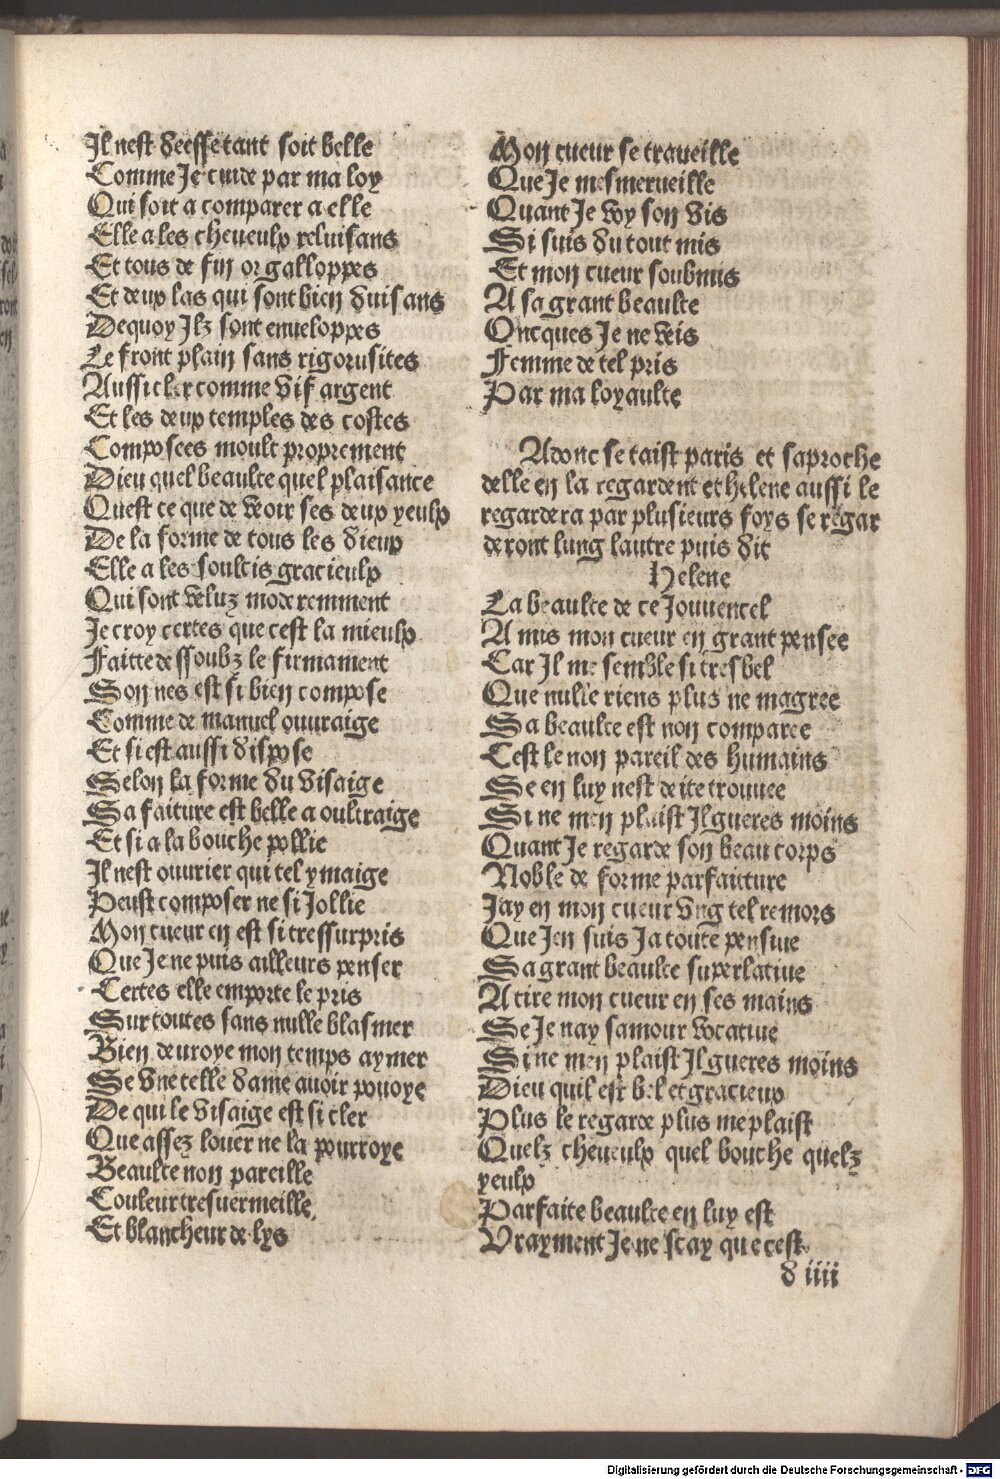 Il nest deesse tant soit belle
Comme Je cuide par ma loy
Qui soit a comparer a elle
Elle a les cheueulx reluisans
Et tous de fin or galloppes
Et deux las qui sont bien duisans
Dequoy Ilz sont enueloppes
Le front plain sans rigorusites
Aussi cler comme vif argent
Et les deux temples des costes
Composees moult proprement
Dieu quel beaulte quel plaisance
Quest ce que de veoir ses deux yeulx
De la forme de tous les dieux
Elle a les soulcis gracieulx
Qui sont veluz moderemment
Je croy certes que cest la mieulx
Faitte dessoubz le firmament
Son nes est si bien compose
Comme de manuel ouuraige
Et si est aussi dispose
Selon la forme du visaige
Sa faiture est belle a oultraige
Et si a la bouche pollie
Il nest ouurier qui tel ymaige
Peust composer ne si Jollie
Mon cueur en est si tressurpris
Que Je ne puis ailleurs penser
Certes elle emporte le pris
Sur toutes sans nulle blasmer
Bien deuroye mon temps aymer
Se vne telle dame auoir pouoye
De qui le visaige est si cler
Que assez louer ne la pourroye
Beaulte non pareille
Couleur tresuermeille
Et blancheur de lys
Mon cueur se traueille
Que Je mesmerueille
Quant Je voy son vis
Si suis du tout mis
Et mon cueur soubmis
A sa grant beaulte
Oncques Je ne veis
Femme de tel pris
Par ma loyaulte
Adonc se taist paris et saproche
delle en la regardent et helene aussi le
regardera par plusieurs foys se regar
deront lung lautre puis dit
Helene
La beaulte de ce Jouuencel
A mis mon cueur en grant pensee
Car Il me semble si tresbel
Que nulle riens plus ne magree
Sa beaulte est non comparee
Cest le non pareil des humains
Se en luy nest deite trouuee
Si ne men plaist Il gueres moins
Quant Je regarde son beau corps
Noble de forme parfaicture
Jay en mon cueur vng tel remors
Que Jen suis Ja toute pensiue
Sa grant beaulte superlatiue
Atire mon cueur en ses mains
Se Je nay samour vocatiue
Si ne men plaist Il gueres moins
Dieu quil est bel et gracieux
Plus le regarde plus me plaist
Quelz cheueulx quel bouche quelz
yeulx
Parfaite beaulte en luy est
Vrayment Je ne scay que cest
d iiii
Digitalisierung gefördert durch die Deutsche Forschungsgemeinschaft - DFG